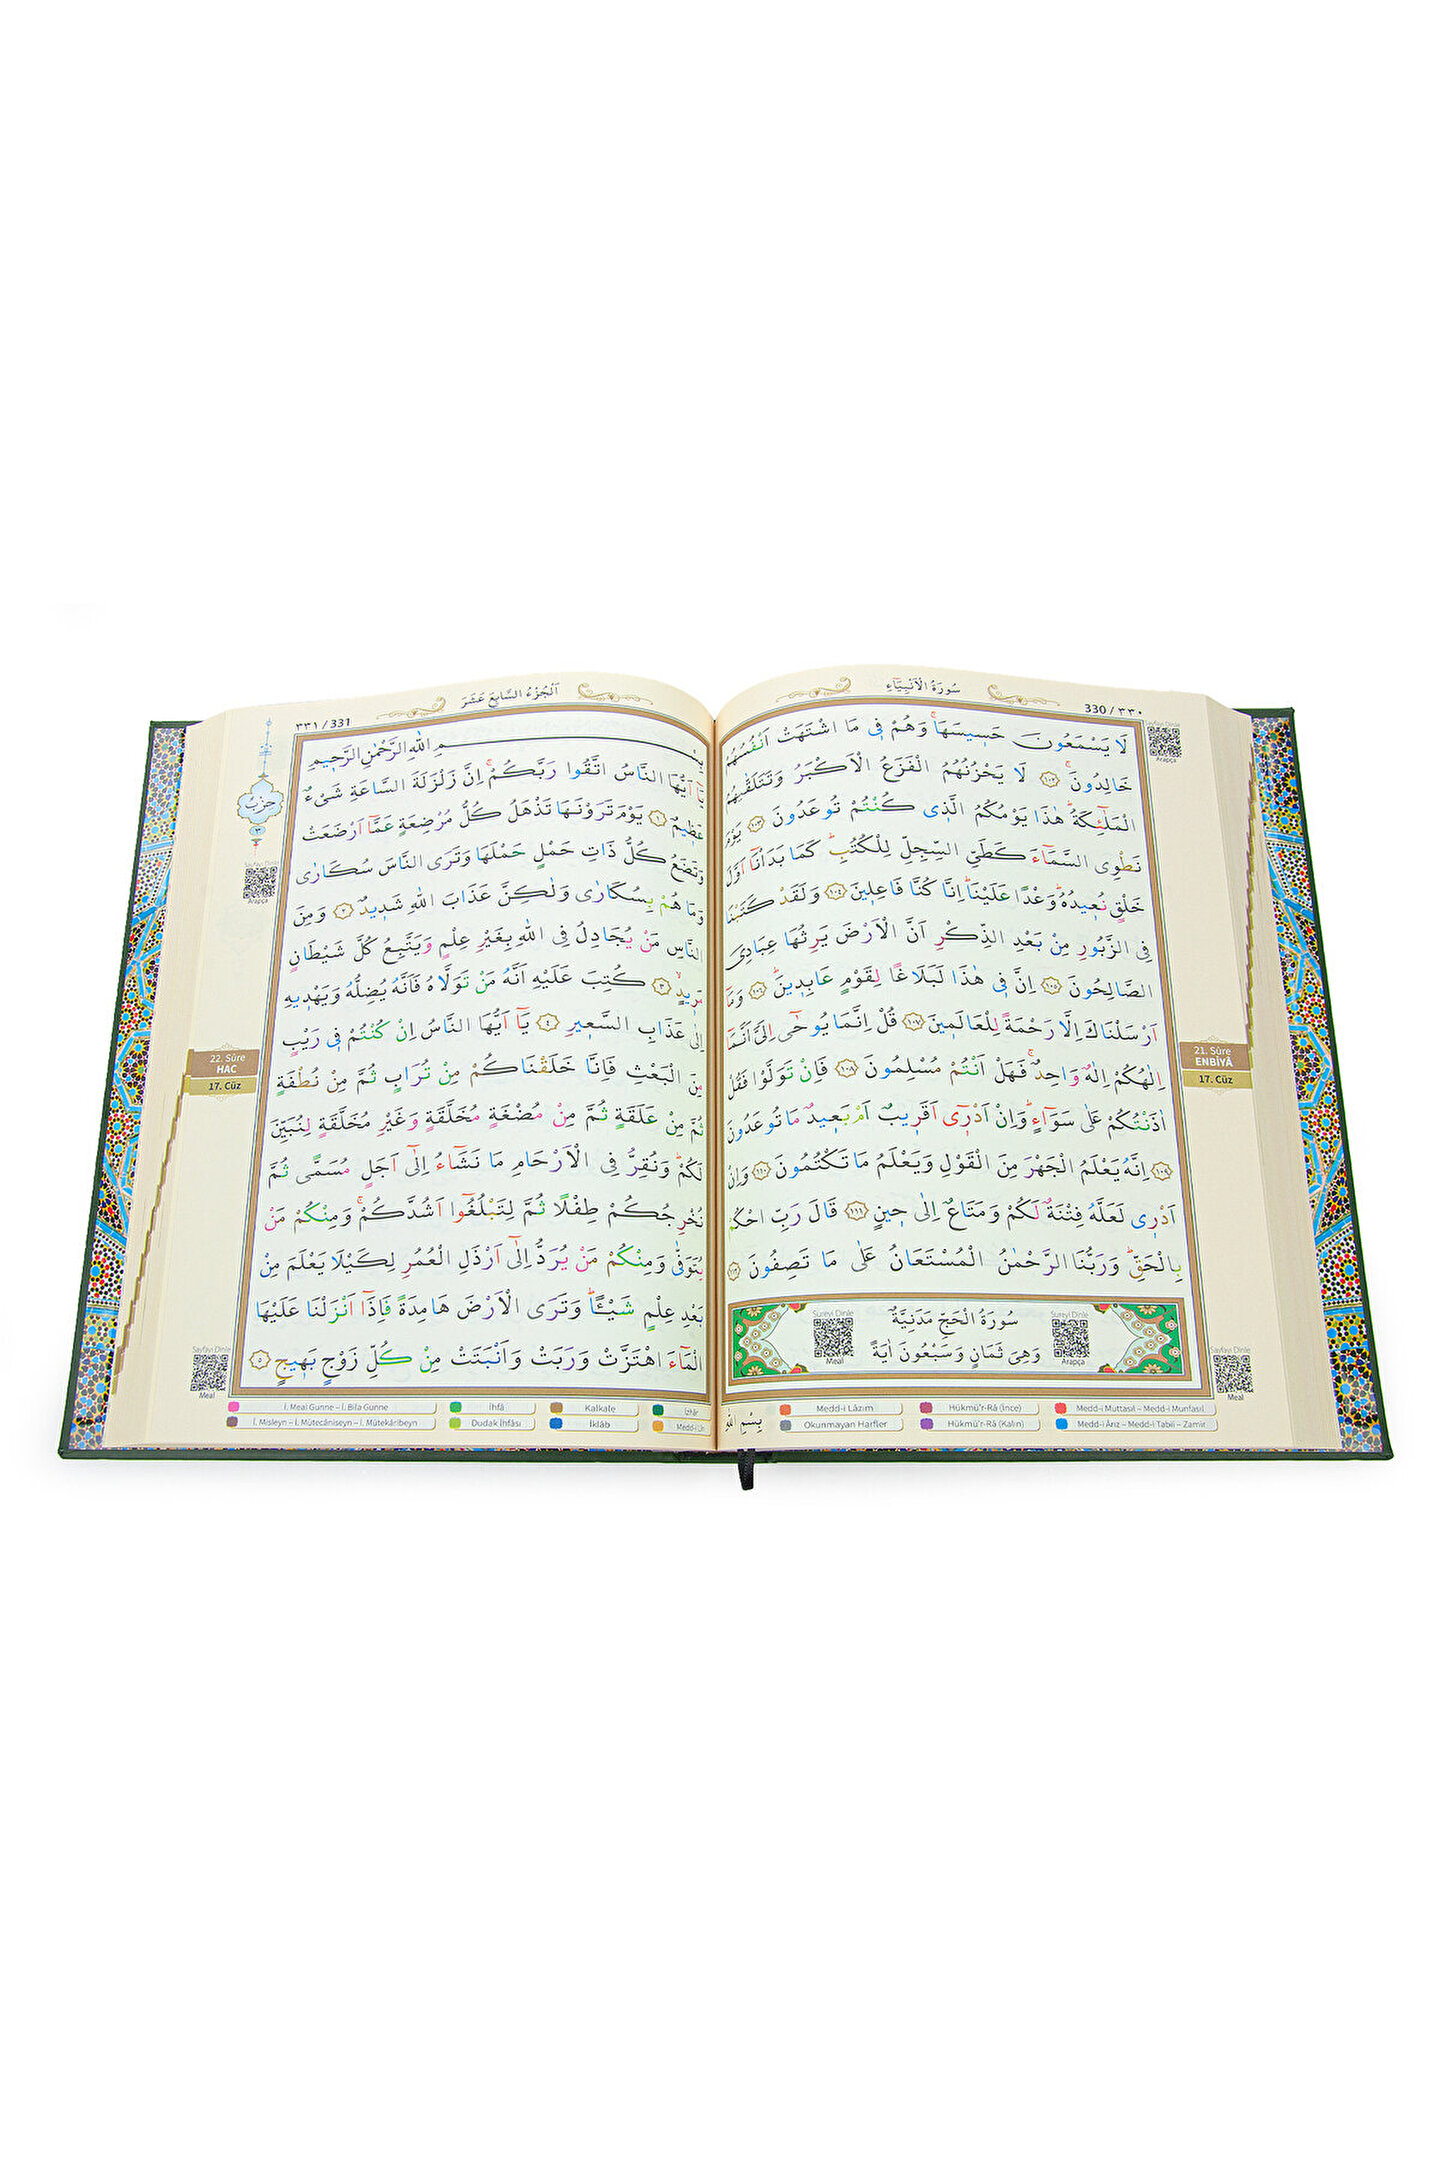 سُورَةُ الْاَنْبِيَٓاءِ
330 / ٣٣٠
لَا يَسْمَعُونَ حَسٖيسَهَاۚ وَهُمْ فٖى مَا اشْتَهَتْ اَنْفُسُهُمْ
خَالِدُونَۚ ﴿١٠٢﴾ لَا يَحْزُنُهُمُ الْفَزَعُ الْاَكْبَرُ وَتَتَلَقّٰيهُمُ
الْمَلٰٓئِكَةُؕ هٰذَا يَوْمُكُمُ الَّذٖى كُنْتُمْ تُوعَدُونَ ﴿١٠٣﴾ يَوْمَ
نَطْوِى السَّمَٓاءَ كَطَىِّ السِّجِلِّ لِلْكُتُبِؕ كَمَا بَدَاْنَٓا اَوَّلَ
خَلْقٍ نُعٖيدُهُؕ وَعْدًا عَلَيْنَاؕ اِنَّا كُنَّا فَاعِلٖينَ ﴿١٠٤﴾ وَلَقَدْ كَتَبْنَا
فِى الزَّبُورِ مِنْ بَعْدِ الذِّكْرِ اَنَّ الْاَرْضَ يَرِثُهَا عِبَادِىَ
الصَّالِحُونَ ﴿١٠٥﴾ اِنَّ فٖى هٰذَا لَبَلَاغًا لِقَوْمٍ عَابِدٖينَؕ ﴿١٠٦﴾ وَمَٓا
اَرْسَلْنَاكَ اِلَّا رَحْمَةً لِلْعَالَمٖينَ ﴿١٠٧﴾ قُلْ اِنَّمَا يُوحٰٓى اِلَىَّ اَنَّمَٓا
اِلٰهُكُمْ اِلٰهٌ وَاحِدٌۚ فَهَلْ اَنْتُمْ مُسْلِمُونَ ﴿١٠٨﴾ فَاِنْ تَوَلَّوْا فَقُلْ
اٰذَنْتُكُمْ عَلٰى سَوَٓاءٍؕ وَاِنْ اَدْرٖٓى اَقَرٖيبٌ اَمْ بَعٖيدٌ مَا تُوعَدُونَ
﴿١٠٩﴾ اِنَّهُ يَعْلَمُ الْجَهْرَ مِنَ الْقَوْلِ وَيَعْلَمُ مَا تَكْتُمُونَ ﴿١١٠﴾ وَاِنْ
اَدْرٖى لَعَلَّهُ فِتْنَةٌ لَكُمْ وَمَتَاعٌ اِلٰى حٖينٍ ﴿١١١﴾ قَالَ رَبِّ احْكُمْ
بِالْحَقِّؕ وَرَبُّنَا الرَّحْمٰنُ الْمُسْتَعَانُ عَلٰى مَا تَصِفُونَ ﴿١١٢﴾
سُورَةُ الْحَجِّ مَدَنِيَّةٌ
وَهِىَ ثَمَانٍ وَسَبْعُونَ اٰيَةً
Sureyi Dinle
Arapça
Sureyi Dinle
Meal
Sayfayı Dinle
Arapça
21. Sûre
ENBİYÂ
17. Cüz
Sayfayı Dinle
Meal
بِسْمِ اللهِ
Medd-i Lâzım
Hükmü'r-Râ (İnce)
Medd-i Muttasıl – Medd-i Munfasıl
Okunmayan Harfler
Hükmü'r-Râ (Kalın)
Medd-i Ârız – Medd-i Tabii – Zamir
اَلْجُزْءُ السَّابِعَ عَشَرَ
٣٣١ / 331
بِسْمِ اللهِ الرَّحْمٰنِ الرَّحٖيمِ
يَٓا اَيُّهَا النَّاسُ اتَّقُوا رَبَّكُمْۚ اِنَّ زَلْزَلَةَ السَّاعَةِ شَىْءٌ
عَظٖيمٌ ﴿١﴾ يَوْمَ تَرَوْنَهَا تَذْهَلُ كُلُّ مُرْضِعَةٍ عَمَّٓا اَرْضَعَتْ
وَتَضَعُ كُلُّ ذَاتِ حَمْلٍ حَمْلَهَا وَتَرَى النَّاسَ سُكَارٰى
وَمَا هُمْ بِسُكَارٰى وَلٰكِنَّ عَذَابَ اللهِ شَدٖيدٌ ﴿٢﴾ وَمِنَ
النَّاسِ مَنْ يُجَادِلُ فِى اللهِ بِغَيْرِ عِلْمٍ وَيَتَّبِعُ كُلَّ شَيْطَانٍ
مَرٖيدٍۙ ﴿٣﴾ كُتِبَ عَلَيْهِ اَنَّهُ مَنْ تَوَلَّاهُ فَاَنَّهُ يُضِلُّهُ وَيَهْدٖيهِ
اِلٰى عَذَابِ السَّعٖيرِ ﴿٤﴾ يَٓا اَيُّهَا النَّاسُ اِنْ كُنْتُمْ فٖى رَيْبٍ
مِنَ الْبَعْثِ فَاِنَّا خَلَقْنَاكُمْ مِنْ تُرَابٍ ثُمَّ مِنْ نُطْفَةٍ
ثُمَّ مِنْ عَلَقَةٍ ثُمَّ مِنْ مُضْغَةٍ مُخَلَّقَةٍ وَغَيْرِ مُخَلَّقَةٍ لِنُبَيِّنَ
لَكُمْؕ وَنُقِرُّ فِى الْاَرْحَامِ مَا نَشَٓاءُ اِلٰٓى اَجَلٍ مُسَمًّى ثُمَّ
نُخْرِجُكُمْ طِفْلًا ثُمَّ لِتَبْلُغُٓوا اَشُدَّكُمْۚ وَمِنْكُمْ مَنْ
يُتَوَفّٰى وَمِنْكُمْ مَنْ يُرَدُّ اِلٰٓى اَرْذَلِ الْعُمُرِ لِكَيْلَا يَعْلَمَ مِنْ
بَعْدِ عِلْمٍ شَيْـًٔاؕ وَتَرَى الْاَرْضَ هَامِدَةً فَاِذَٓا اَنْزَلْنَا عَلَيْهَا
الْمَٓاءَ اهْتَزَّتْ وَرَبَتْ وَاَنْبَتَتْ مِنْ كُلِّ زَوْجٍ بَهٖيجٍ ﴿٥﴾
حِزْبٌ
Sayfayı Dinle
Arapça
22. Sûre
HAC
17. Cüz
Sayfayı Dinle
Meal
İ. Meal Gunne – İ. Bila Gunne
İhfâ
Kalkale
İzhâr
İ. Misleyn – İ. Mütecâniseyn – İ. Mütekâribeyn
Dudak İhfâsı
İklâb
Medd-i Lîn